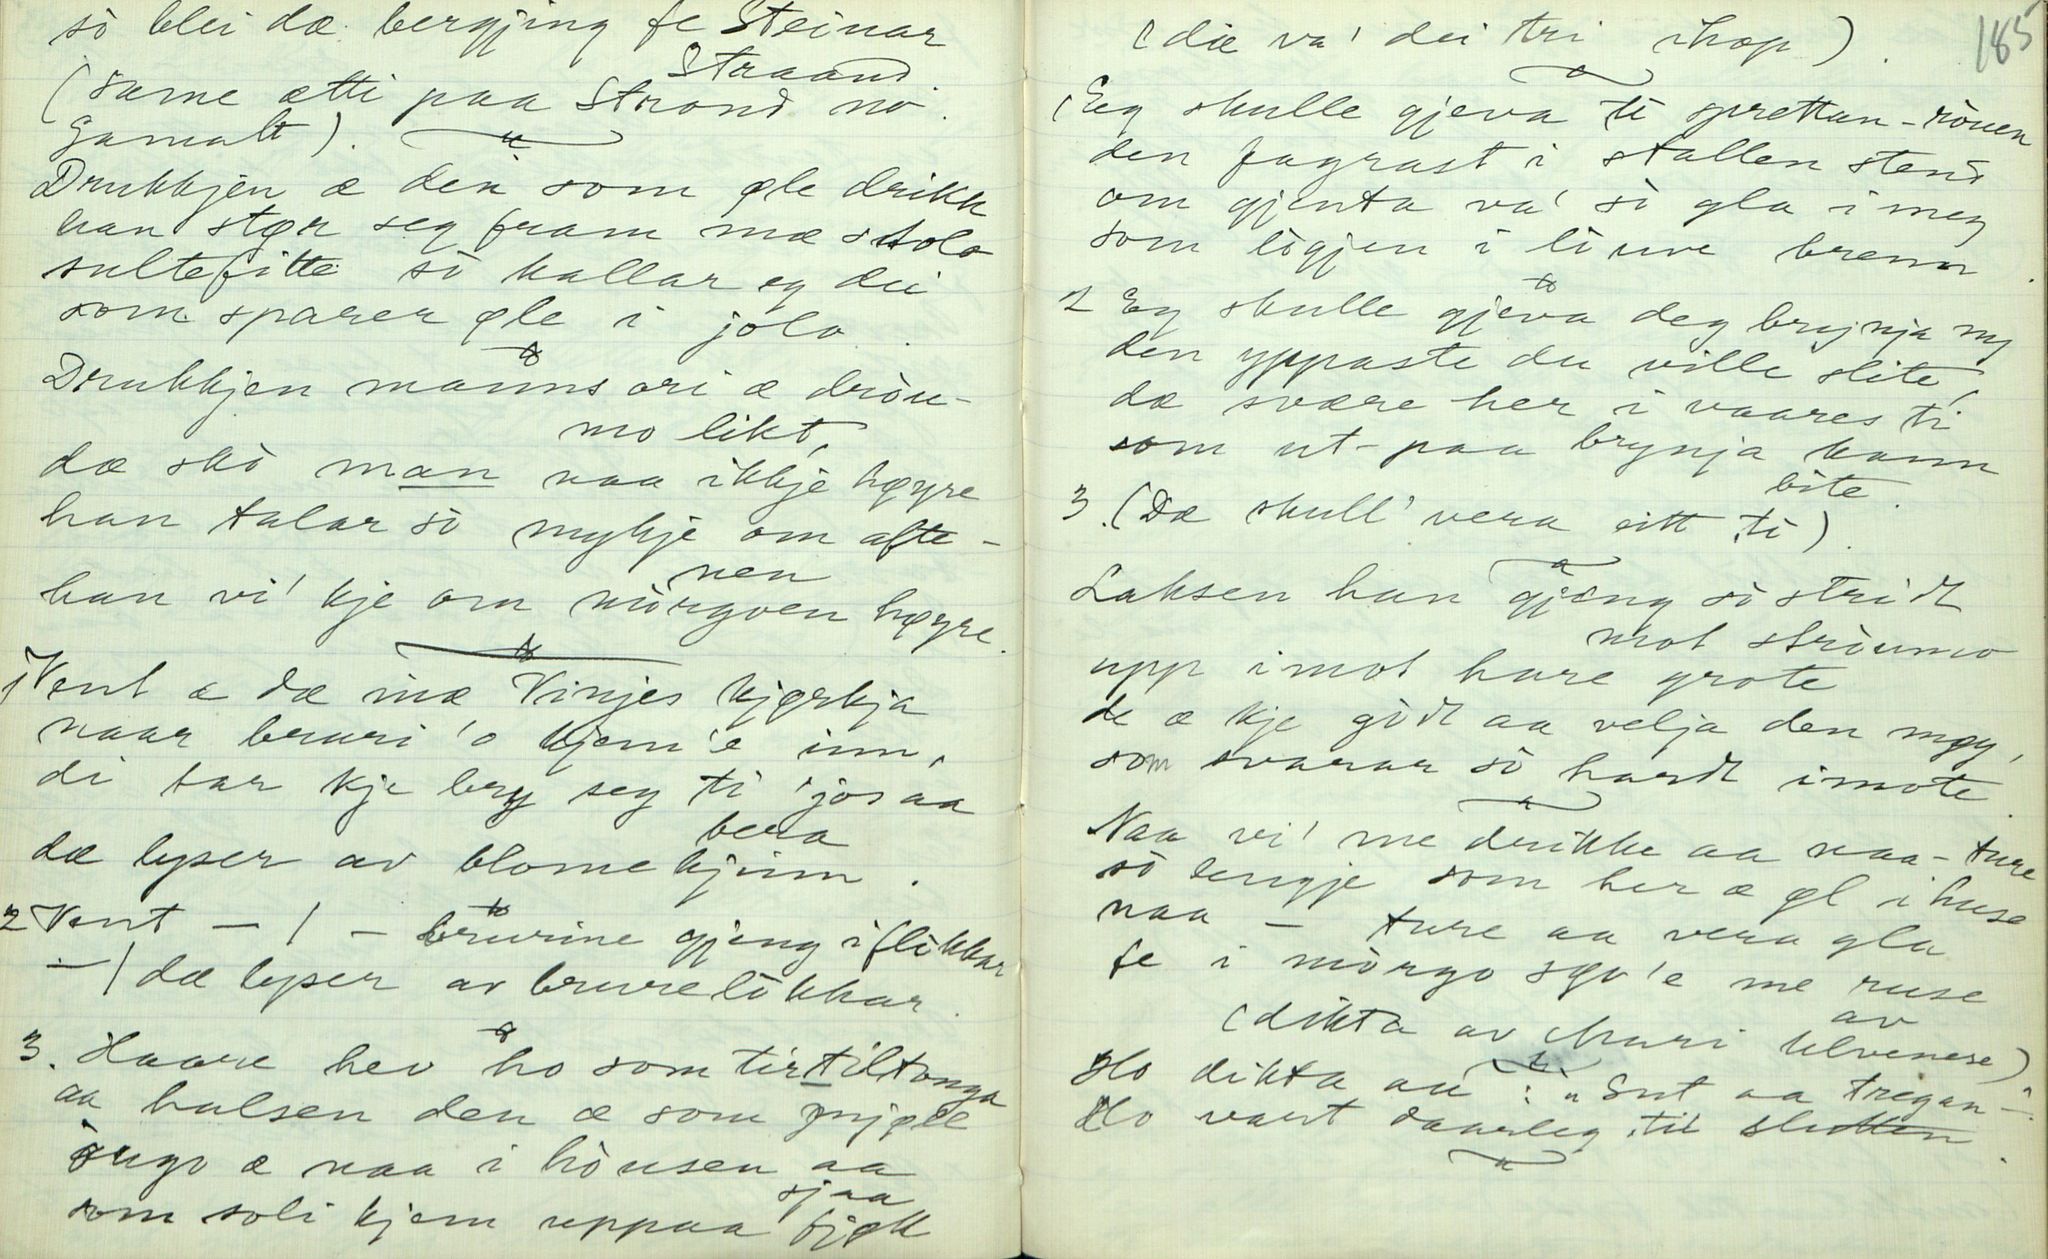 sò blei dæ bergjing fe Steinar
Straand
(same ætti paa Strond no
gamalt).
Drukkjen æ den som øle drikk
han stør seg fram mæ stolo
sultefitte sò kallar eg dei
som sparer øle i jolo.
Drukkjen manns ori æ dròu-
mo likt,
dæ skò man naa ikkje høyre
han talar sò mykje om afte-
nen
han vi' kje om mòrgoen høyre.
1 Vent æ dæ inæ Vinjes kjørkja
naar bruri 'o kjem'e inn,
di tar kje bry seg ti 'jos aa
bera
dæ lyser av blome kjinn.
2 Vent — / — brurine gjeng i flòkkar
— / dæ lyser av brurelòkkar.
3. Haare hev ho som tirtiltonga
aa halsen den æ som mjøll
òugo æ naa i hòusen aa
sjaa
som soli kjem uppaa fjøll
185
(die va' dei tri ihop).
(Eg skulle gjeva ti sprettan-ròuen
den fagrast i stallen stend
om gjenta va' sò gla i meg
som lògjen i lòuve brenn.
2 Eg skulle gjeva deg brynja ny
den yppaste du ville slite,
dæ svære her i vaares ti
som ut-paa brynja kann
bite.
3. (Dæ skull' vera eitt ti).
Laksen han gjeng sò stridt
mot stròumo
upp imot hare grote
de æ kje gòdt aa velja den møy,
som svarar sò hardt imote.
Naa vi' me drikke aa naa-ture
sò lengje som her æ øl i huse
naa — ture aa vera gla
fe i mòrgo søv'e me ruse
av
(dikta av Muri Elvenese)
Ho dikta au: "Sut aa tregan—".
Ho vart daarleg til slutten.